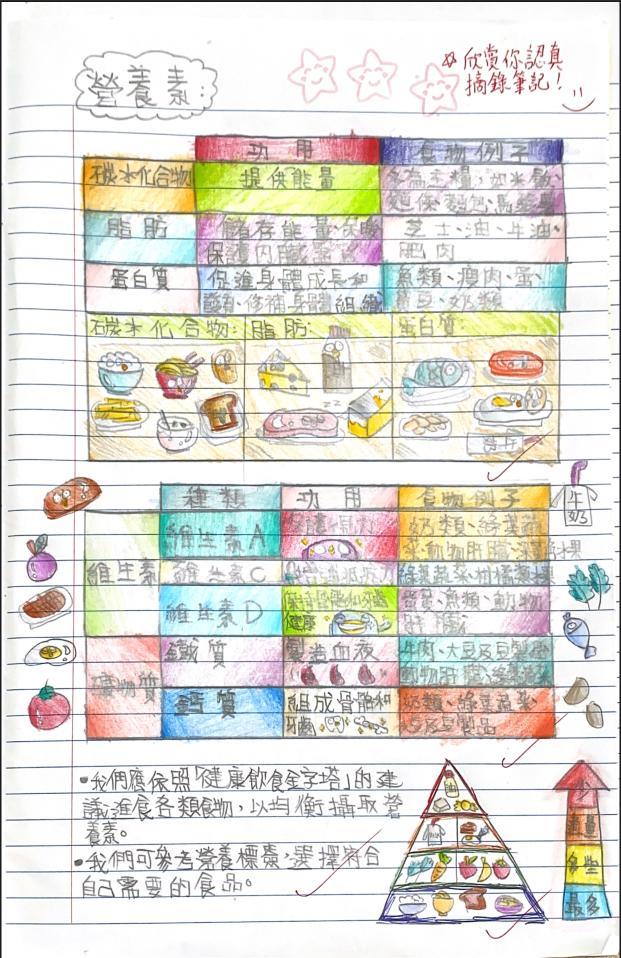 營養素:
欣賞你認真
摘錄筆記!
功用
食物例子
碳水化合物
提供能量
脂肪
儲存能量、
保護內臟
芝士、油、牛油、
肥肉
蛋白質
促進身體成長和
修補身體組織
魚類、瘦肉、蛋、
豆、奶類
碳水化合物:
脂肪:
蛋白質:
種類
功用
食物例子
牛奶
維生素
維生素A
奶類、綠葉蔬
菜、動物肝臟、
維生素C
綠葉蔬菜、柑橘類
維生素D
保持骨骼和牙齒
健康
魚類、動物
肝臟
礦物質
鐵質
製造血液
牛肉、大豆及豆製品
動物肝臟、綠葉蔬菜
鈣質
組成骨骼和
牙齒
奶類、綠葉蔬菜、
豆製品
•我們應依照「健康飲食金字塔」的建
議進食各類食物，以均衡攝取營
養素。
•我們可參考營養標籤，選擇符合
自己需要的食品。
適量
多些
最多